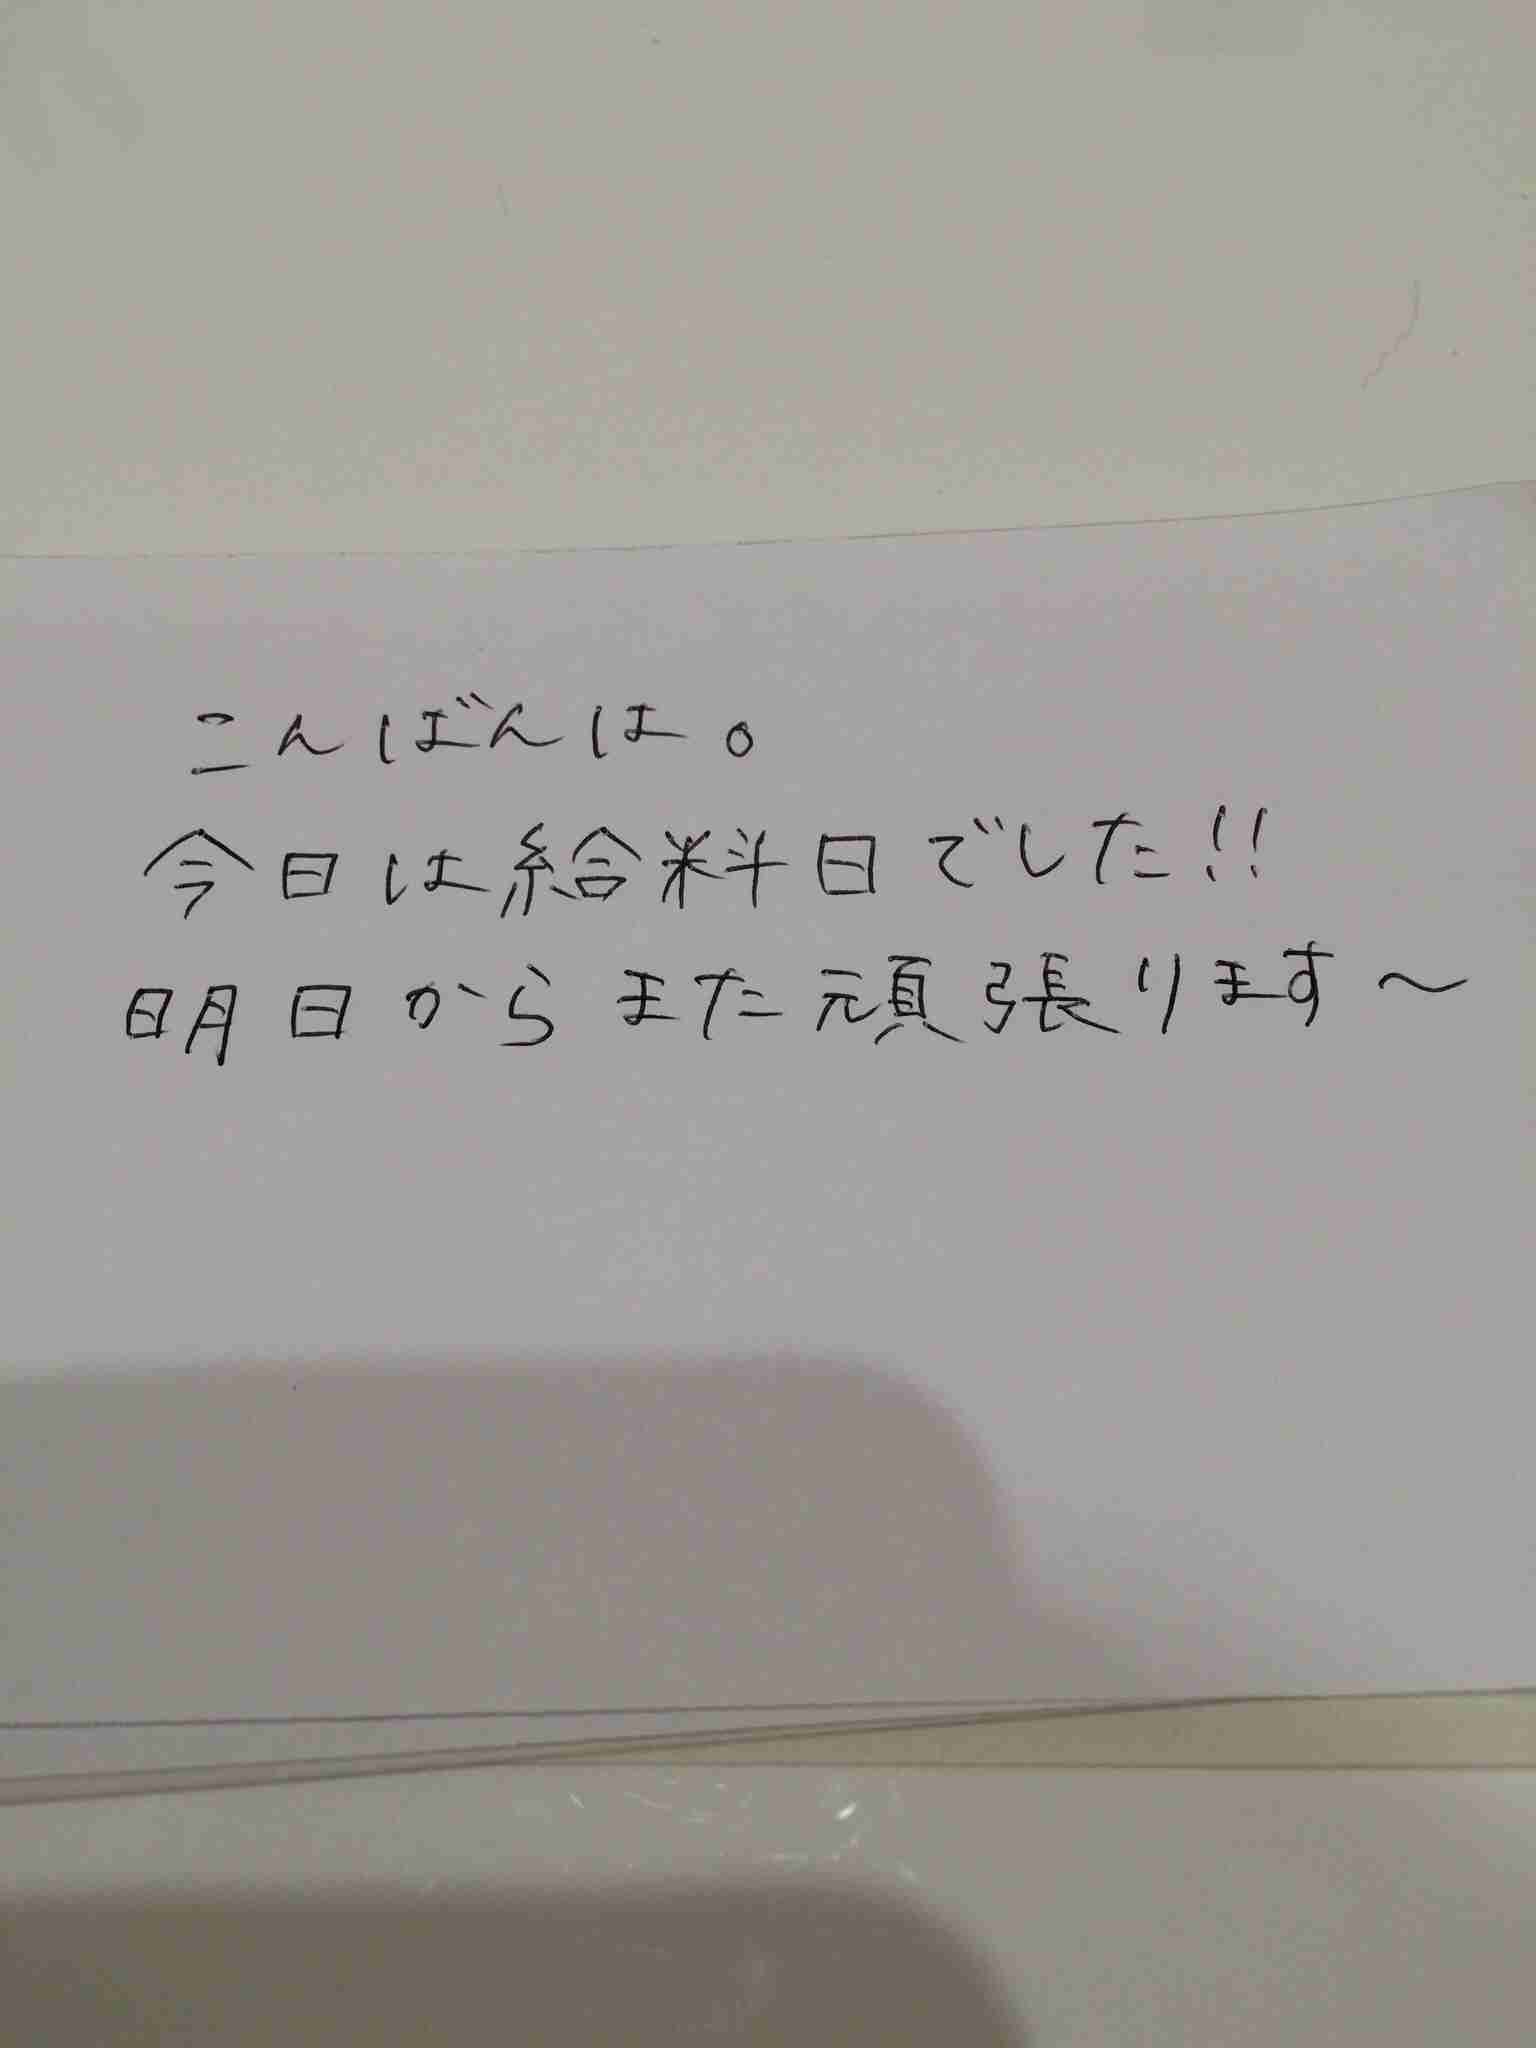 こんばんは。
今日は給料日でした!!
明日からまた頑張ります～